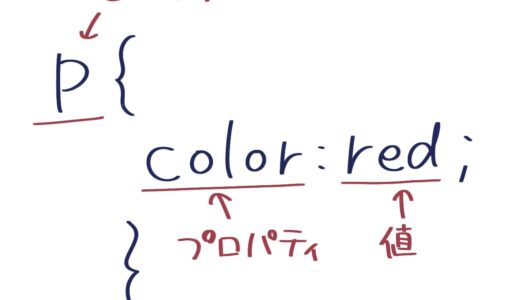 p{
color:red;
プロパティ 値
}